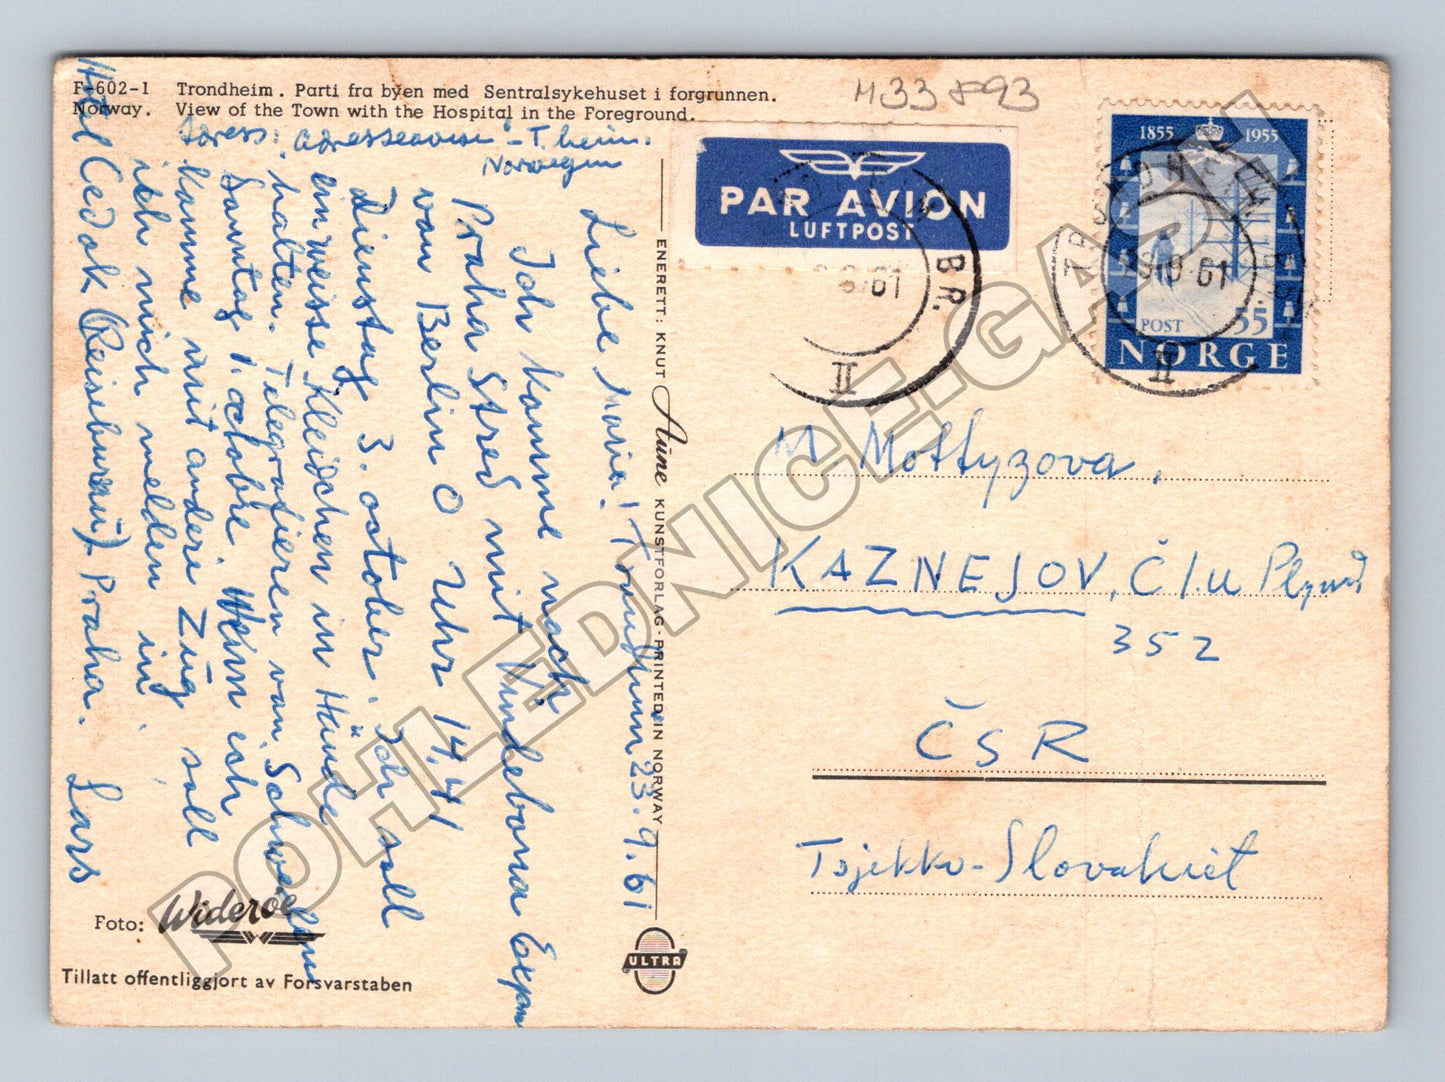 F-602-1 Trondheim. Parti fra byen med Sentralsykehuset i forgrunnen.
Norway. View of the Town with the Hospital in the Foreground.
M33 F93
Adress: Adresseavisen - T.heim.
Norwegen
Liebe Maria! Trondheim 23.9.61
Ich komme nach
Praha Střed mit Vindobona Express
von Berlin O Uhr 14.41
Dienstag 3. october. Ich soll
ein weisse Kleidchen in Hände
halten. Telegrafieren von Schweden
Sonntag 1. octobre. Wenn ich
komme mit andere Zug soll
ich mich melden in
Hotel Cedok (Reisebureau) Praha.
Lars
Foto: Widerøe
Tillatt offentliggjort av Forsvarstaben
ENERETT: KNUT Aune KUNSTFORLAG - PRINTED IN NORWAY
ULTRA
PAR AVION
LUFTPOST
BR.
61
II
1855 1955
POST 55
NORGE
TRONDHEIM
61
II
M Mottyzova,
KAZNEJOV, Č/.u Plzně
352
ČSR
Tsjekko-Slovakiet
POHLEDNICE-GALI